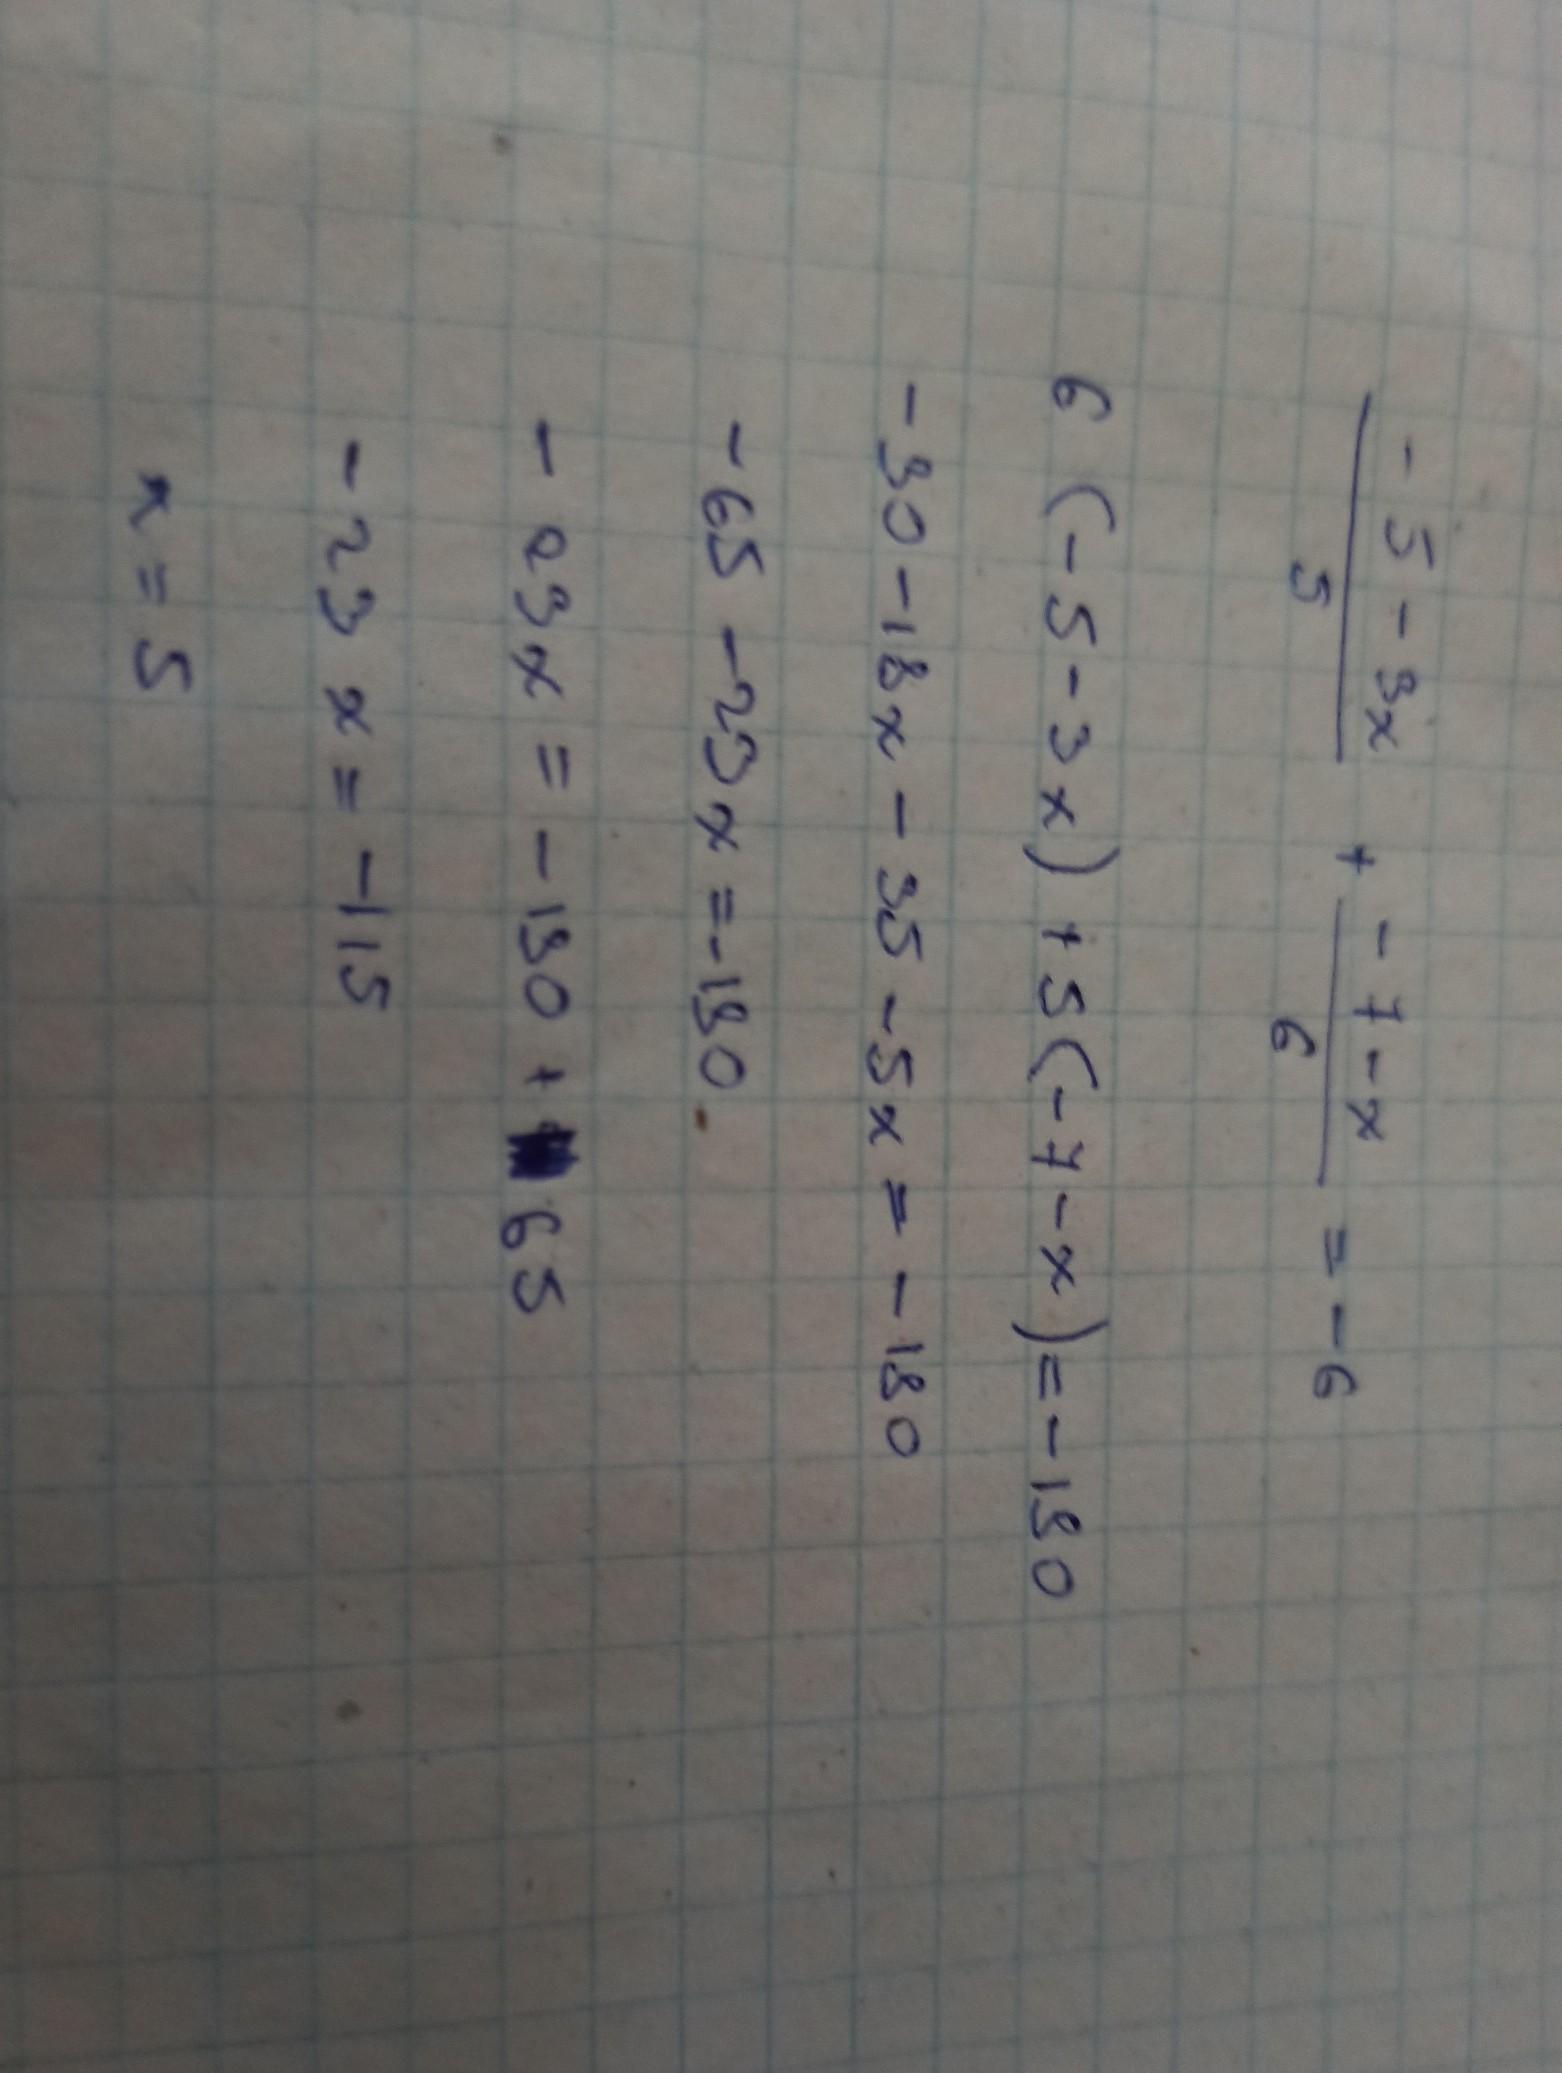 (-5-3x)/5 + (-7-x)/6 = -6
6(-5-3x)+5(-7-x)=-180
-30-18x-35-5x=-180
-65-23x=-180
-23x=-180+65
-23x=-115
x=5